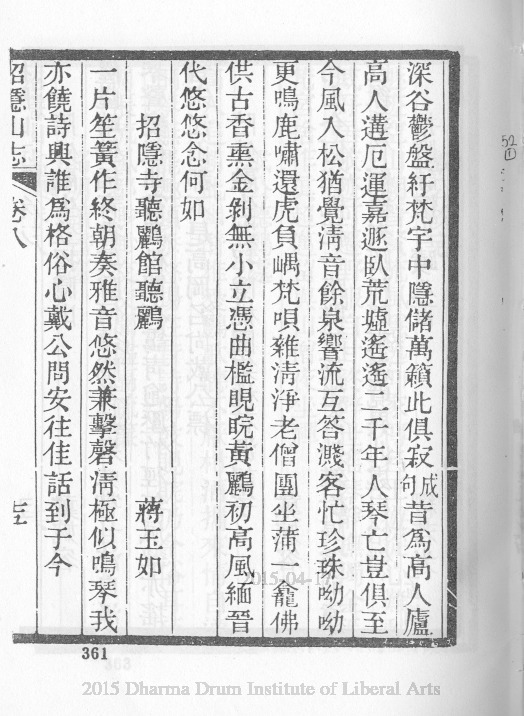 深谷鬱盤紆梵宇中隱儲萬籟此俱寂成句昔爲高人廬
高人遘厄運嘉遯臥荒墟遙遙二千年人琴亡豈俱至
今風入松猶覺淸音餘泉響流互答濺客忙珍珠呦呦
更鳴鹿嘯還虎負嵎梵唄雜淸淨老僧團坐蒲一龕佛
供古香熏金剝無小立憑曲檻睍睆黃鸝初高風緬晉
代悠悠念何如
招隱寺聽鸝館聽鸝 蔣玉如
一片笙簧作終朝奏雅音悠然兼擊磬淸極似鳴琴我
亦饒詩興誰爲格俗心戴公問安往佳話到于今
招隱山志 卷八
361
52
1
2015-04-17
2015 Dharma Drum Institute of Liberal Arts